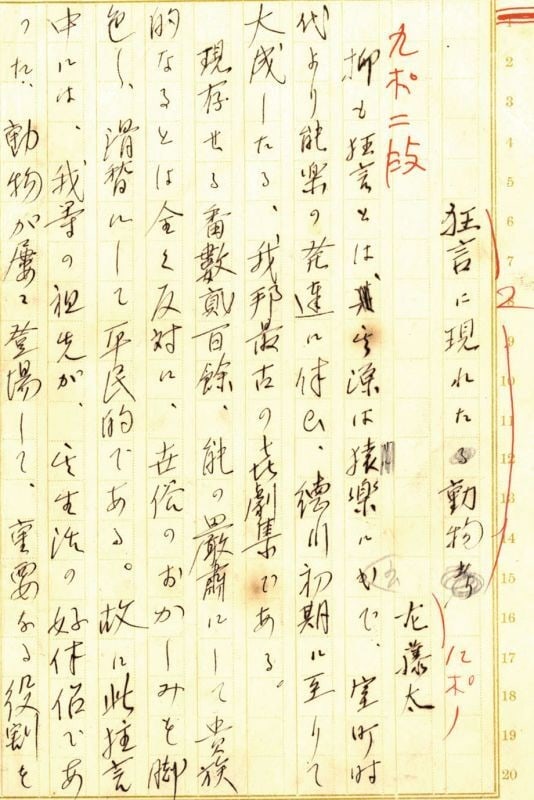 狂言に現れたる動物
藤太
九ポ二段
抑も狂言とは、其源は猿楽に出で、室町時
代より能楽の発達に伴ひ、徳川初期に至りて
大成したる、我邦最古の喜劇集である。
現存せる番數貳百餘、能の嚴肅にして貴族
的なるとは全く反対に、世俗のおかしみを脚
色し、滑稽にして平民的である。故に此狂言
中には、我等の祖先が、其生活の好伴侶であ
つた、動物が屢々登場して、重要なる役割を
2
1
2
3
4
5
6
7
9
10
11
12
13
14
15
16
17
18
19
20